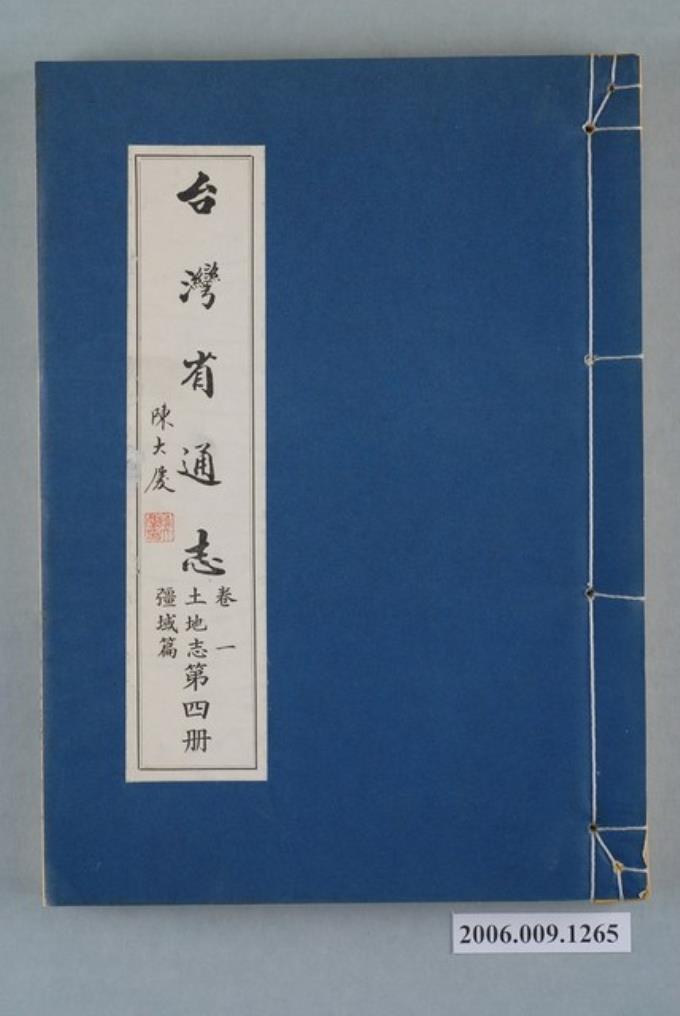 台灣省通志
卷一
土地志
疆域篇
第四册
陳大慶
2006.009.1265